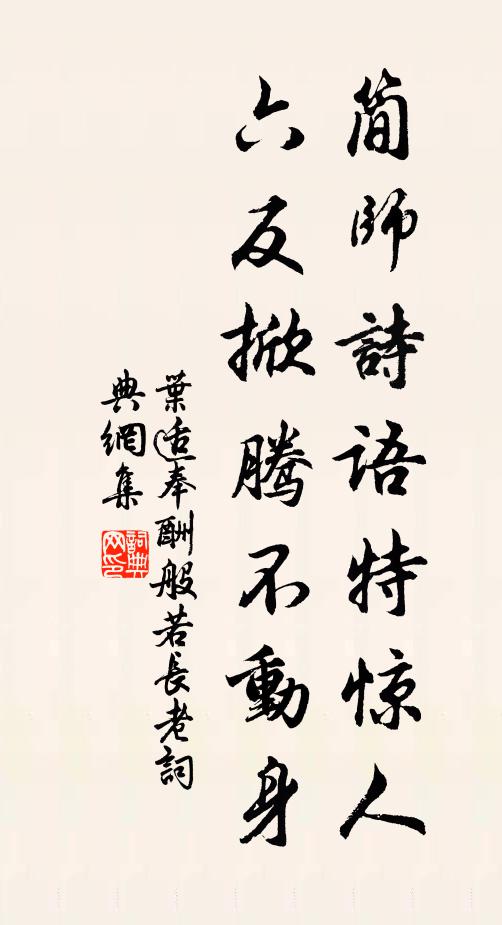 簡師詩語特惊人
六反掀騰不動身
葉适奉酬般若長老詞
典網集
詞典网印